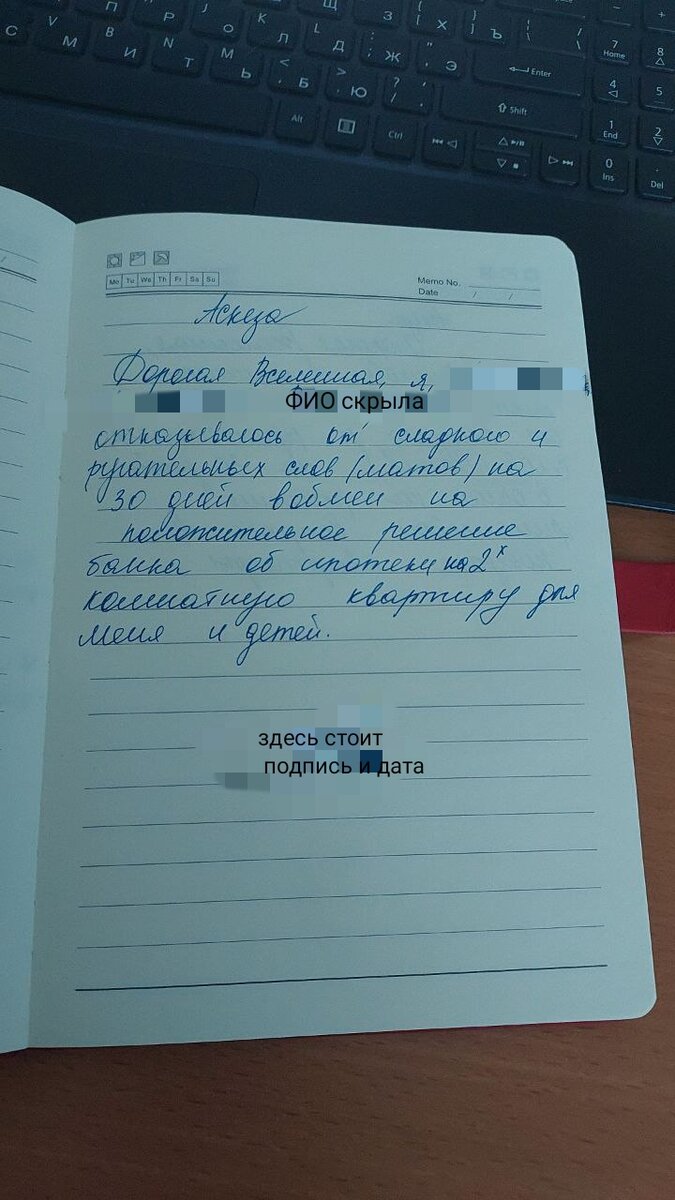 С М В И П Р Т О Ь Л Б Щ Д Ю З Ж Х Э Ъ
N M K L
Enter
Shift
Alt Ctrl
7 Home 8
4 5
1 End 2
0 Ins . Del
Mo Tu We Th Fr Sa Su
Memo No.
Date / /
Аскеза
Дорогая Вселенная, я,
ФИО скрыла
отказываюсь от сладкого и
ругательных слов (матов) на
30 дней в обмен на
положительное решение
банка об ипотеки на 2х
комнатную квартиру для
меня и детей.
здесь стоит
подпись и дата